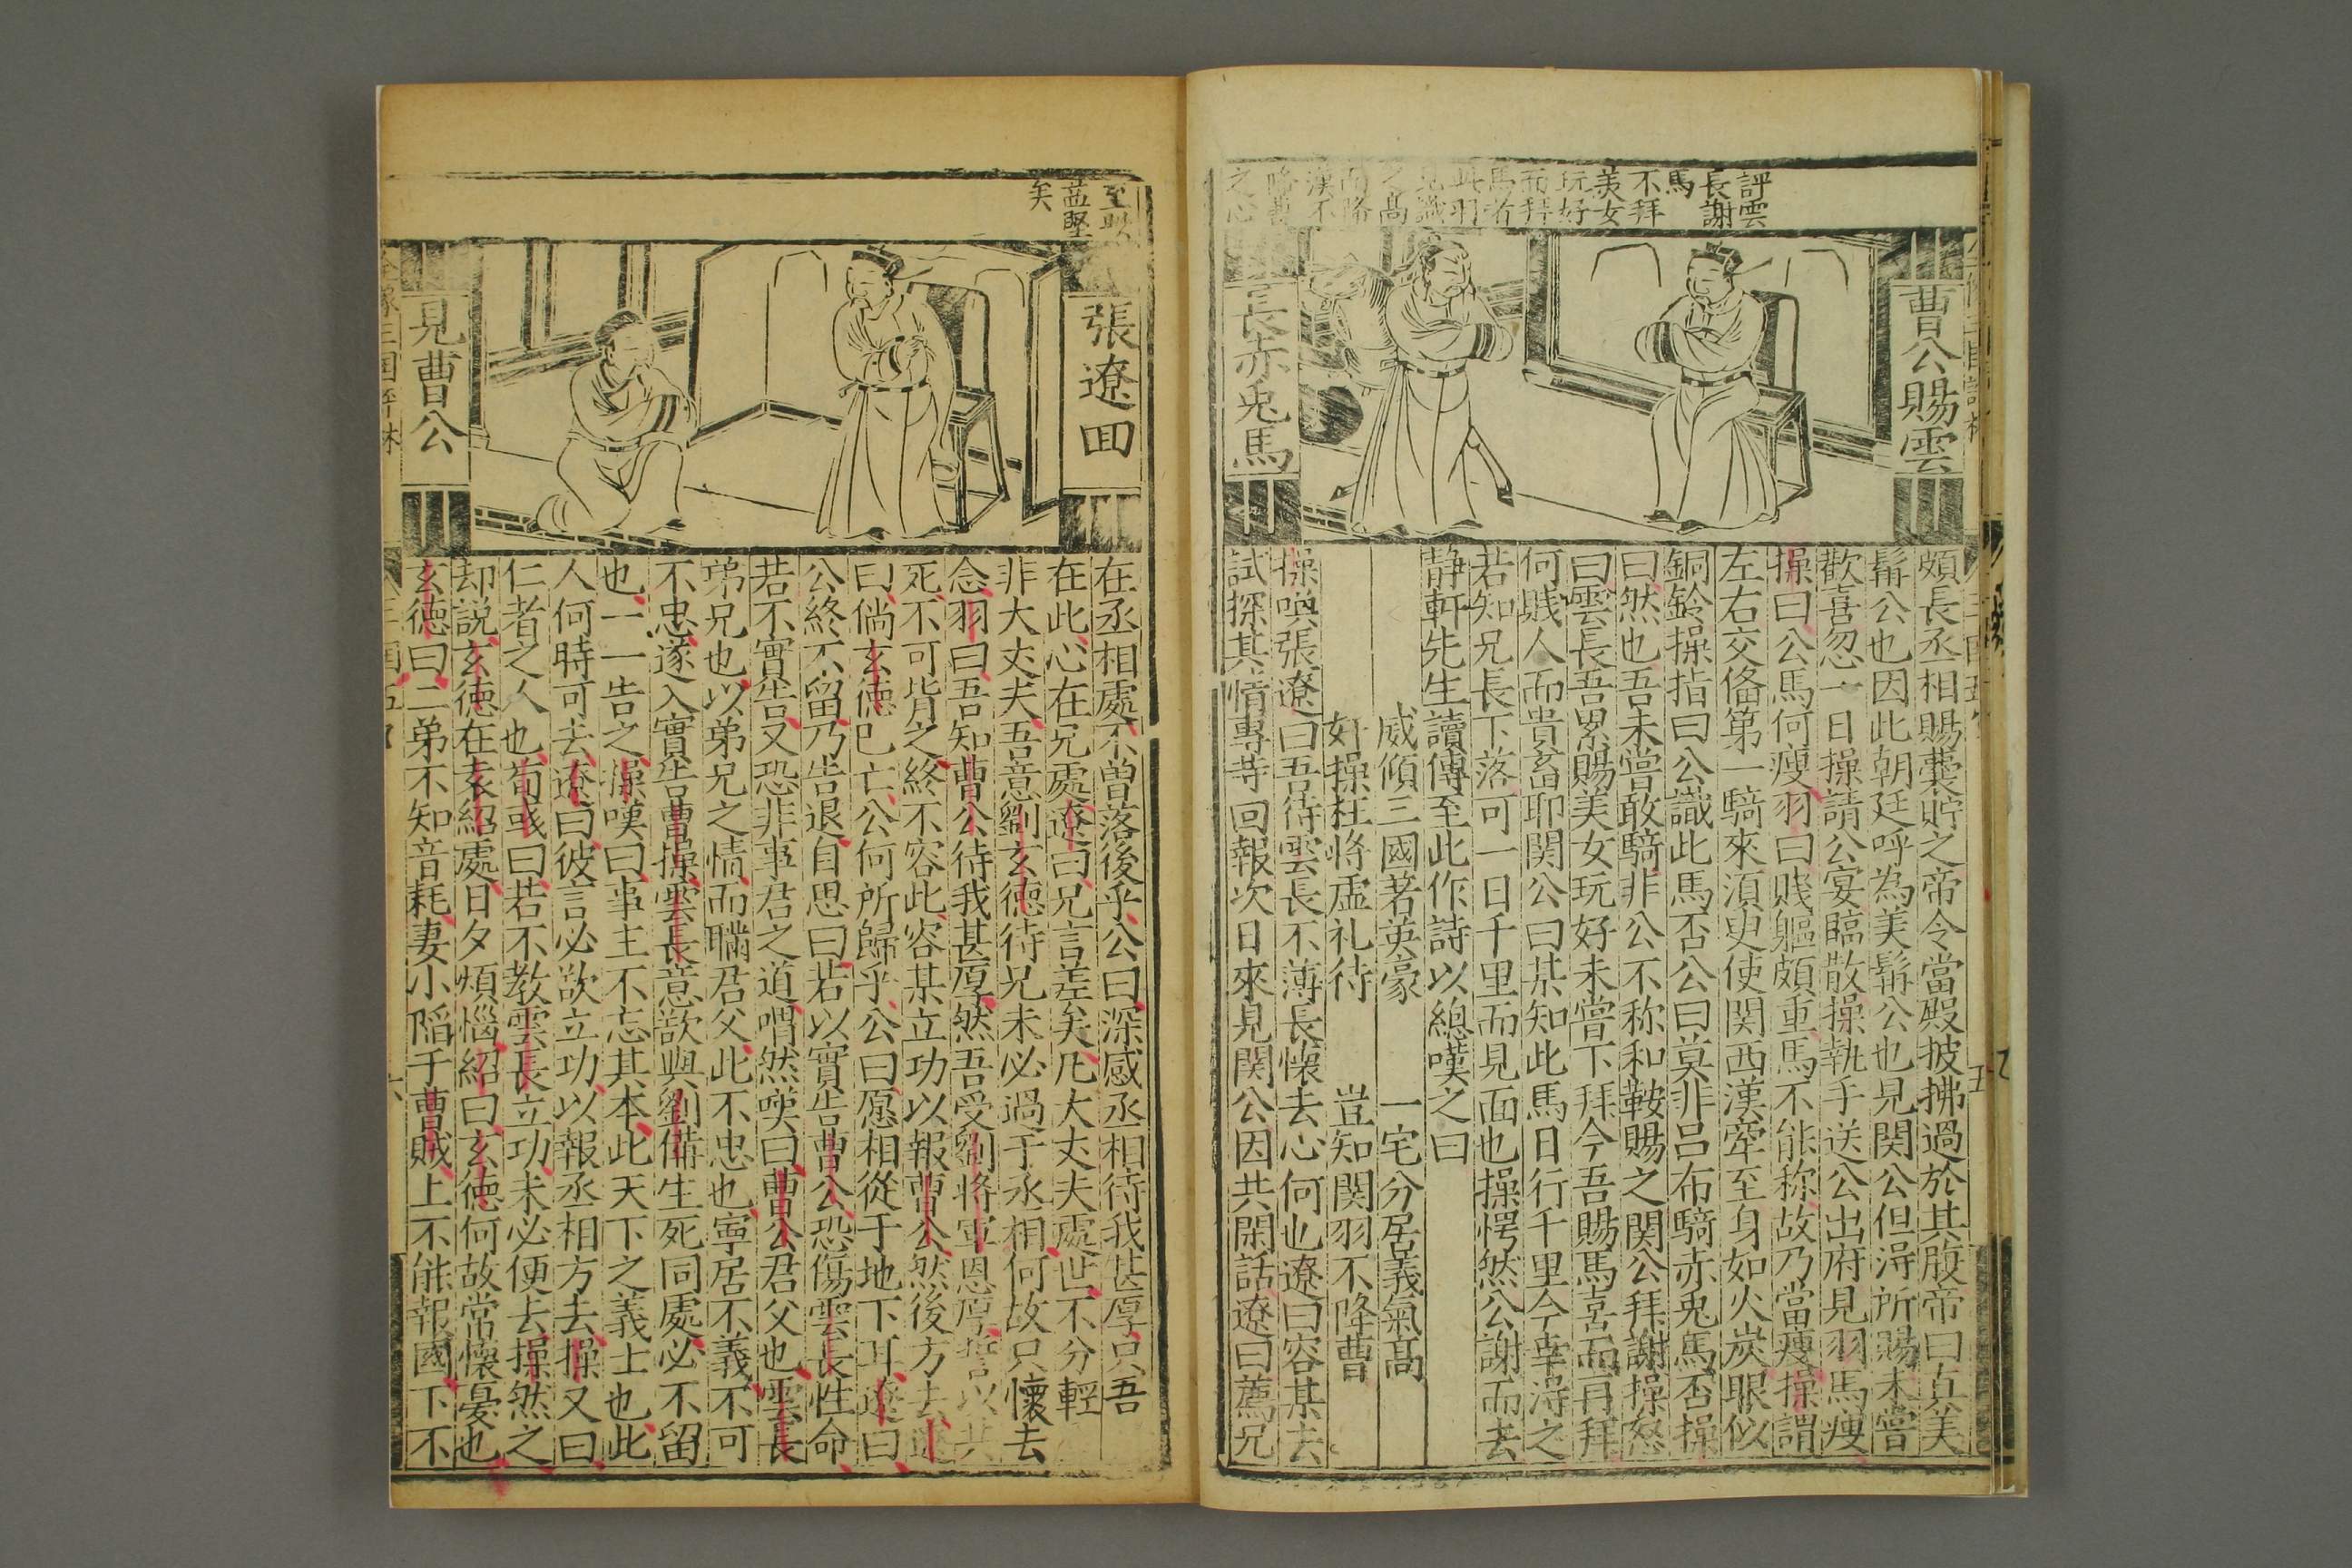 評雲
長謝
馬
不拜
美女
玩好
而拜
馬者
此羽
見識
之高
而降
漢不
降曹
之心
曹公賜雲
長赤兎馬
頗長丞相賜囊貯之帝令當殿披拂過於其腹帝曰真美
髯公也因此朝廷呼為美髯公也見関公但淂所賜未嘗
歡喜忽一日操請公宴臨散操執手送公出府見羽馬瘦
操曰公馬何瘦羽曰賤軀頗重馬不能称故乃當瘦操謂
左右交俻第一騎來須臾使関西漢牽至身如火炭眼似
銅鈴操指曰公識此馬否公曰莫非呂布騎赤兎馬否操
曰然也吾未嘗敢騎非公不称和鞍賜之関公拜謝操怒
曰雲長吾累賜美女玩好未嘗下拜今吾賜馬喜而再拜
何賤人而貴畜耶関公曰某知此馬日行千里今幸淂之
若知兄長下落可一日千里而見面也操愕然公謝而去
静軒先生讀傳至此作詩以總嘆之曰
威傾三國著英豪　一宅分居義氣高
奸操枉將虛礼待　豈知関羽不降曹
操喚張遼曰吾待雲長不薄長懷去心何也遼曰容某去
試探其情專等回報次日來見関公因共閑話遼曰薦兄
至此
益堅
矣
張遼回
見曹公
在丞相處不曾落後乎公曰深感丞相待我甚厚只吾
在此心在兄處遼曰兄言差矣凡大丈夫處世不分輕
非大丈夫吾意劉玄德待兄未必過于丞相何故只懷去
念羽曰吾知曹公待我甚厚然吾受劉將軍恩厚誓以共
死不可背之終不容此容某立功以報曹公然後方去遼
曰倘玄德已亡公何所歸乎公曰愿相從于地下耳遼曰
公終不留乃告退自思曰若以實告曹公恐傷雲長性命
若不實告又恐非事君之道喟然嘆曰曹公君父也雲長
弟兄也以弟兄之情而瞞君父此不忠也寧居不義不可
不忠遂入實告曹操雲長意欲與劉備生死同處必不留
也一一告之操嘆曰事主不忘其本此天下之義士也此
人何時可去遼曰彼言必欲立功以報丞相方去操又曰
仁者之人也荀彧曰若不教雲長立功未必便去操然之
却說玄德在袁紹處日夕煩惱紹曰玄德何故常懷憂也
玄德曰二弟不知音耗妻小陷于曹賊上不能報國下不